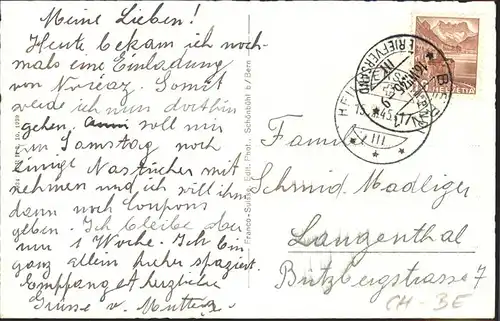 Meine Lieben!
Heute bekam ich noch-
mals eine Einladung
von Noréaz. Somit
werde ich nun dorthin
gehen. soll mir
am Samstag noch
einige Nastücher mit
nehmen und ich will ihm
dann noch Coupons
geben. Ich bleibe aber
nur 1 Woche. Ich bin
ganz allein hieher spaziert.
Empfanget herzliche
Grüsse v.
Franco-Suisse, Edit. Phot., Schönbühl b/Bern
HELVETIA
BRIEFVERSAND
BERN
III
Fam.
Schmid-Madliger
Langenthal
Bützbergstrasse 7
CH-BE